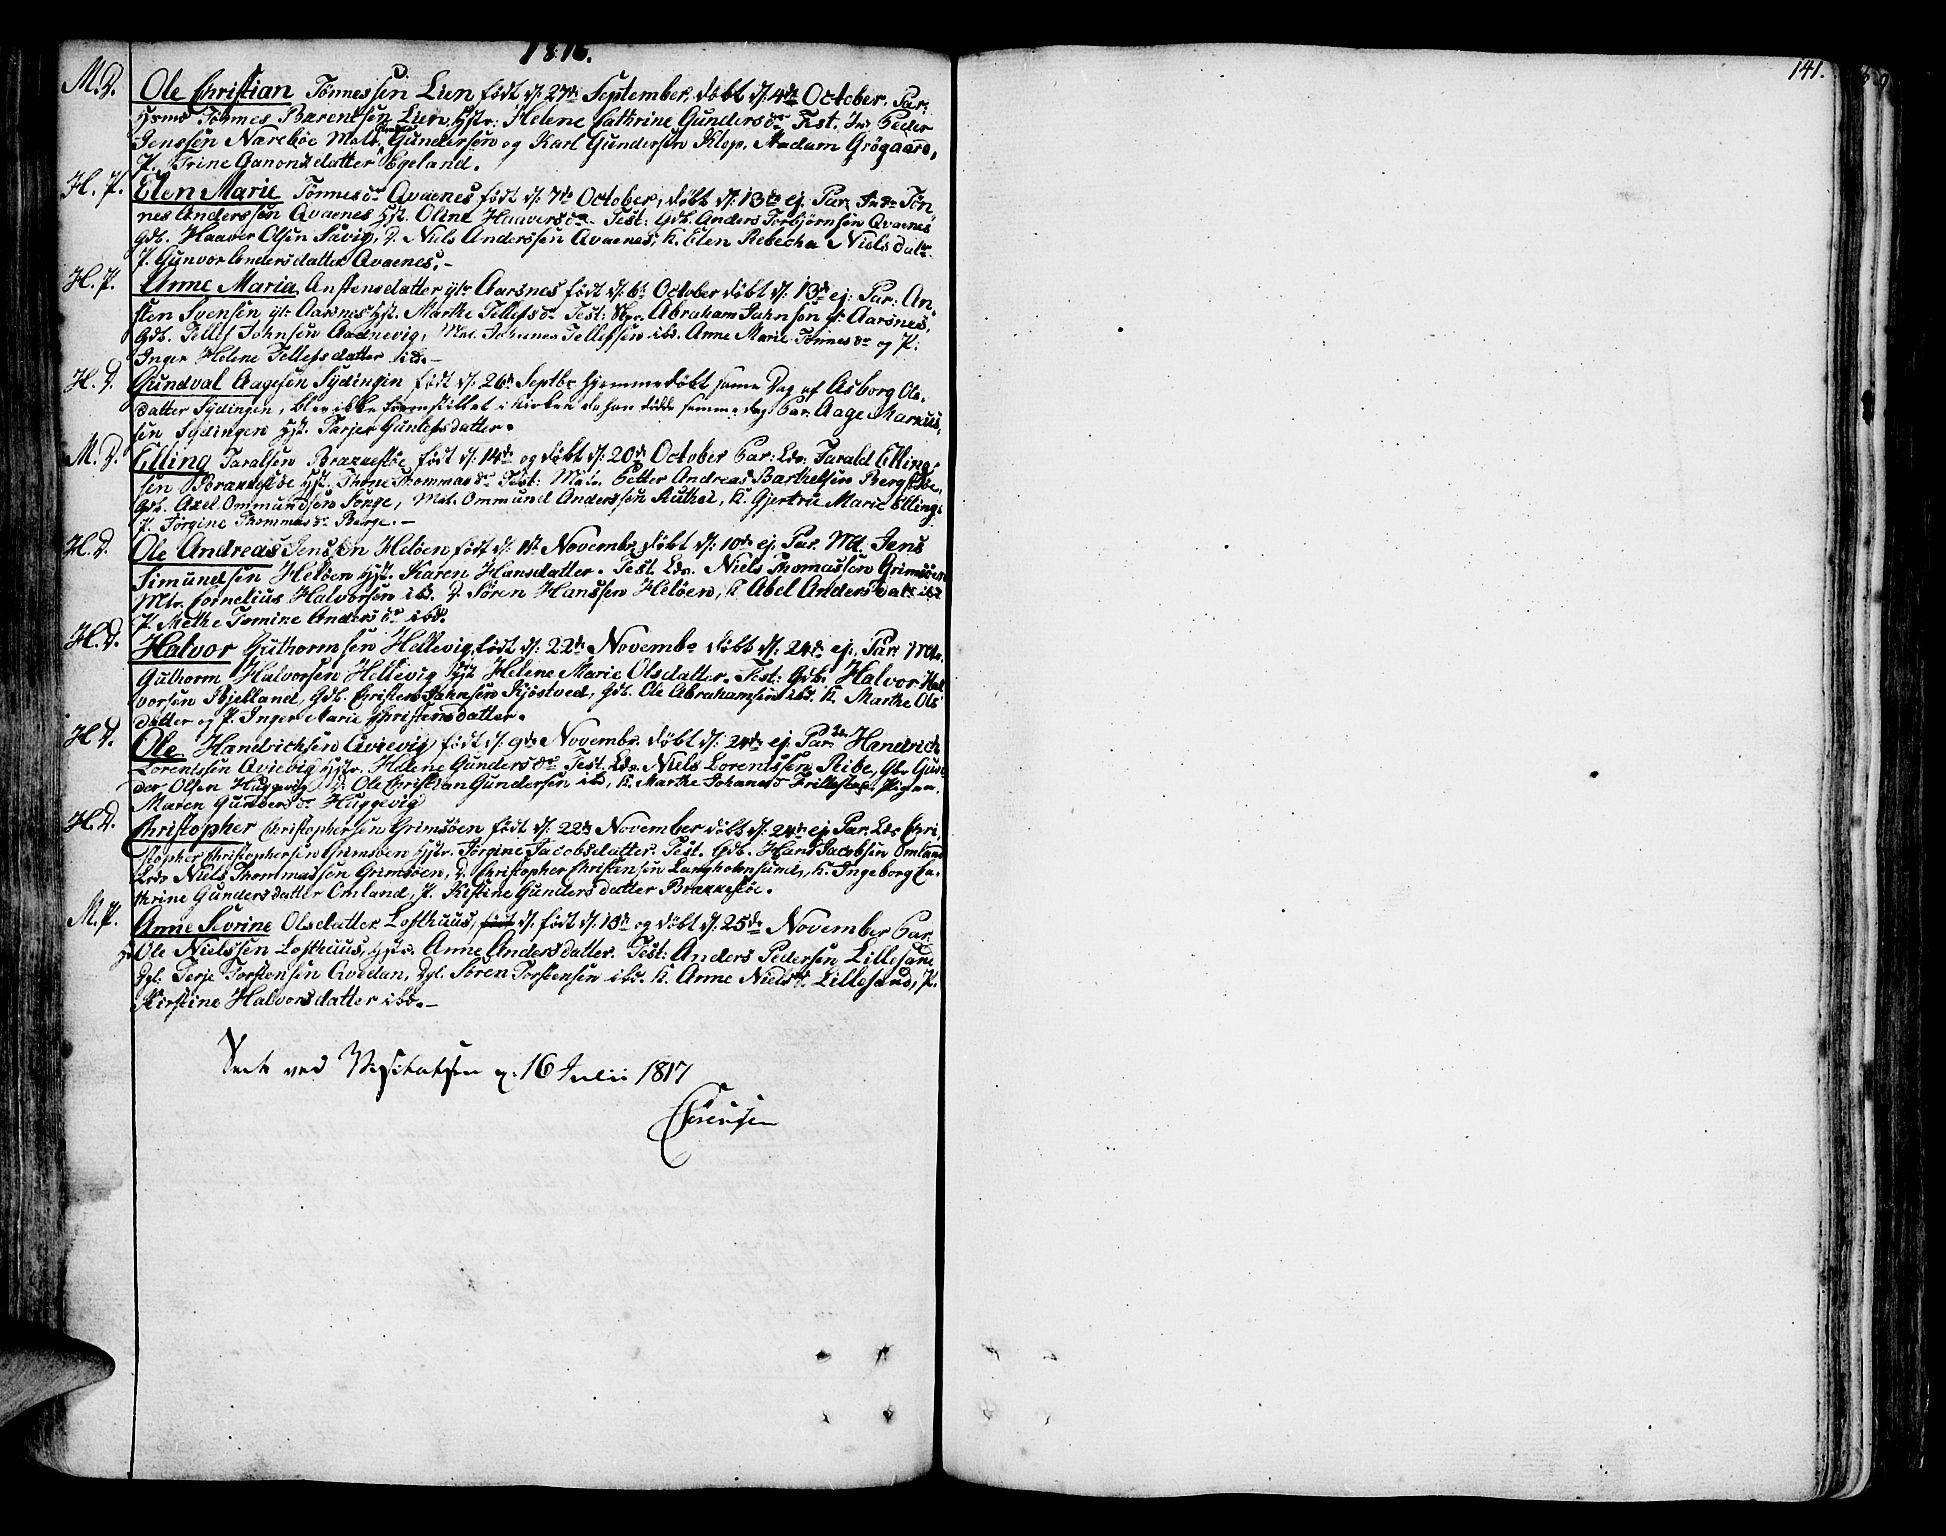 1816.
141.
M. D. Ole Christian Tønnessen Lien født d: 27de September, døbt d: 4de October. Par:
Tønnes Bærentsen Lien, Hstr: Helene Cathrine Gundersdr Test. Peder
Jenssen Narebøe Matr. Gundersen og Karl Gundersen Klep, Madam Grøgaard,
P. Trine Aanonsdatter Egeland.
H. P. Elen Marie Tønnesdr Qvaenes født d: 7de October, døbt d: 13de ej. Par: Tøn,
nes Anderssen Qvaenes Hst. Oline Haaversdr Test: Gdb. Anders Torbjørnsen Qvaenes
Gdb. Haaver Olsen Savig, D. Niels Anderssen Qvaenes, K. Elen Rebecha Nielsdatr
P. Gunvor Andersdatter Qvaenes.–
H. P. Anne Maria Anstensdatter ytr Aarsnes født d: 6t October døbt d: 13de ej: Par: An,
sten Svensen ytr Aarsnes Hst. Marthe Tellefsdr Test: Abraham Jahnsen Aarsnes,
Gdb. Tellef Johnsen Aasnevig, Mat. Johannes Tellefsen ibd. Anne Marie Tønnesdr og P:
Inger Helene Tellefsdatter ibd.–
H. D. Gundval Aagesen Sydingen født d: 26de Septbr hjemmedøbt samme Dag af Asborg Ols,
datter Sydingen, blev ikke fremstillet i Kirken da han døde samme dag Par. Aage Markus,
sen Sydingen Hst. Tarjer Gunlefsdatter.
M. D. Elling Taralsen Brækkestøe født d: 14de og døbt d: 20de October Par: Lds. Tarald Elling,
sen Brækkestøe Hst. Thone Thommasdr Test: Matr. Petter Andreas Barthelsen Bergstøe,
Gdb. Axel Ommundsen Songe, Mat. Ommund Anderssen Authei, K. Gjertru Marie Ellings
P. Jørgine Thommasdr Berge.–
H. D. Ole Andreas Jenssen Heløen født d: 1st Novembr døbt d: 10de ej. Par. Md. Jens
Simundsen Heløen Hst. Karen Hansdatter. Test. Lds. Niels Thomassen Grimsøen
Mtr. Cornelius Halvorsen ibd. D. Søren Hanssen Heløen, K. Abel Andersdatr ibd
P. Methe Tomine Andersdr ibd.
H. D. Halvor Guthormsen Hellevig, født d: 22de Novembr døbt d. 24de ej. Par: Mtr.
Guthorm Halvorsen Hellevig Hst Helene Marie Olsdatter. Test: Gdb. Halvor Hal
vorsen Kjelland, Gdb. Christen Jahnsen Kjøstved, Gdb. Ole Abrahamsen ibd. K. Marthe Ols
datter og P. Inger Marie Christensdatter.
H. D. Ole Handrichsen Qvievig, født d: 9de Novembr. døbt d: 24de ej. Par: Handrich
Lorentssen Qvievig Hstr. Helene Gundersdr Test. Lds. Niels Lorentssen Ribe, Gbr Gun,
der Olsen Huggevig, D. Ole Christian Gundersen ibd, K. Marthe Johansd Frillestad. Pigen.
Maren Gundersdr Huggevig
H. D. Christopher Christophersen Grimsøen født d: 22de November døbt d: 24de ej Par. Lds Chri,
stopher Christophersen Grimsøen Hstr. Jørgine Jacobsdatter. Test. Gdb. Hans Jacobsen Omland
Lds Niels Thommassen Grimsøen, D. Christopher Christensen Langholmsund, K. Ingeborg Ca,
thrine Gundersdatter Omland, P. Kistine Gundersdatter Brækkestøe.
M. P. Anne Severine Olsdatter Lofthuus, født d, født d: 18de og døbt d: 25de November Par.
Ole Nielssen Lofthuus, Hstr. Anne Andersdatter. Test: Anders Pedersen Lillesand
Dgl. Terje Torstensen Qvedan, Dgl. Søren Torstensen ibd. K. Anne Nielsdr Lillesand, P.
Kirstine Halvorsdatter ibd.–
Seet ved Visitatsen d: 16 Julii 1817
Sørensen